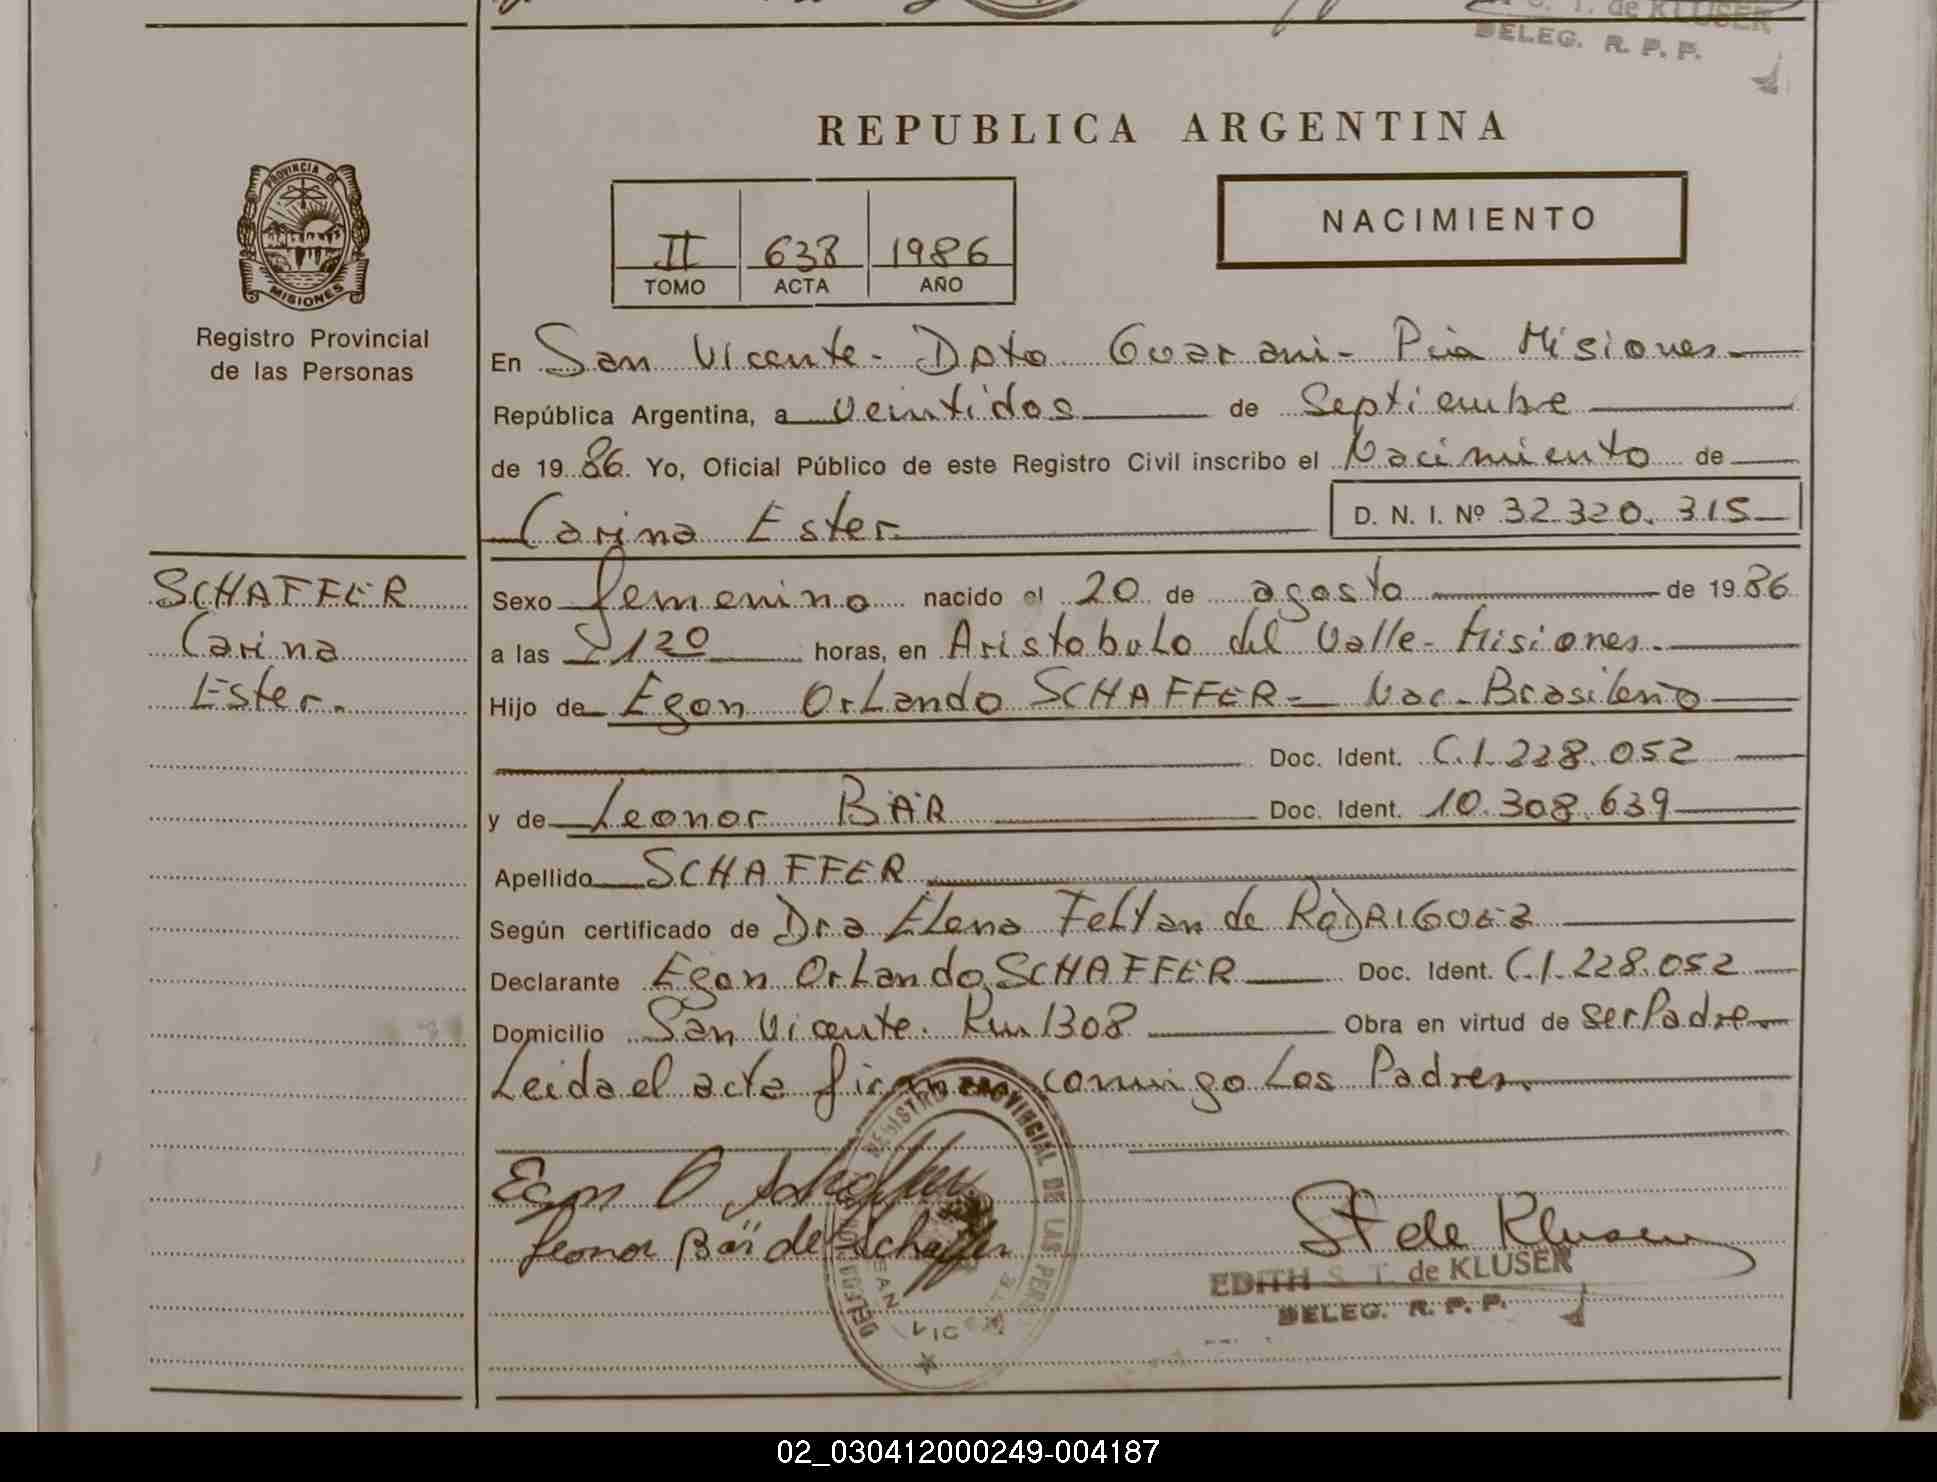 de KLUSER
DELEG. R. P. P.
REPUBLICA ARGENTINA
PROVINCIA DE
MISIONES
Registro Provincial
de las Personas
NACIMIENTO
II 638 1986
TOMO ACTA AÑO
En San Vicente - Dpto Guarani - Pcia Misiones
República Argentina, a veintidos de Septiembre
de 1986. Yo, Oficial Público de este Registro Civil inscribo el Nacimiento de
Carina Ester. D. N. I. Nº 32.320.315
SCHAFFER
Carina
Ester.
Sexo femenino nacido el 20 de agosto de 1986
a las 2120 horas, en Aristobulo del Valle - Misiones.
Hijo de Egon Orlando SCHAFFER = Nac. Brasileño
Doc. Ident. C.I. 228.052
y de Leonor BÄR Doc. Ident. 10.308.639
Apellido SCHAFFER
Según certificado de Dra Elena Feltan de RODRIGUEZ
Declarante Egon Orlando SCHAFFER Doc. Ident. C.I. 228.052
Domicilio San Vicente. Km 1308 Obra en virtud de ser Padre
Leida el acta firman conmigo Los Padres.
REGISTRO PROVINCIAL DE LAS PERS
DELEGACION
SAN VIC
Egon O Schaffer
Leonor Bär de Schaffer
St de Kluser
EDITH S. T. de KLUSER
DELEG. R. P. P.
02_030412000249-004187